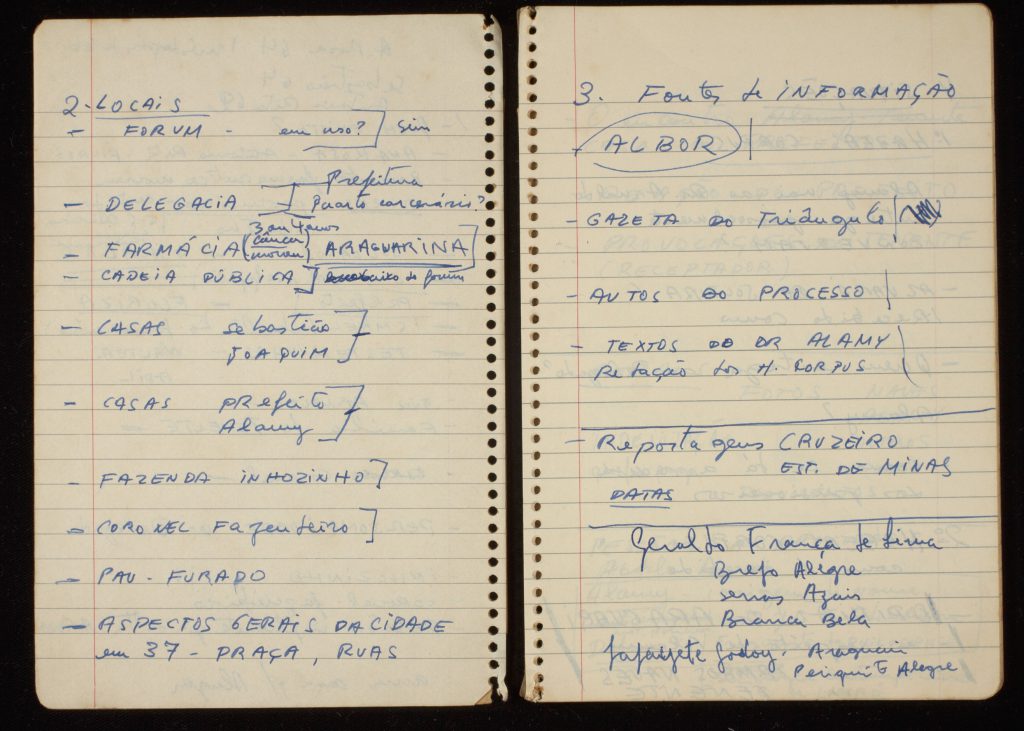 2 - LOCAIS
- FORUM - em uso? ] Sim
Prefeitura
- DELEGACIA Quarto carcerário?
3 ou 4 anos
- FARMÁCIA (câncer ARAGUARINA
morreu)
- CADEIA PÚBLICA ] embaixo do forum
- CASAS sebastião
JOAQUIM
- CASAS PREfeito
Alamy
- FAZENDA INHOZINHO ]
- CORONEL Fazendeiro ]
- PAU-FURADO
- ASPECTOS GERAIS DA CIDADE
em 37 - PRAÇA, RUAS
3. Fontes de INFORMAÇÃO
- ALBOR
- GAZETA DO Triângulo
- AUTOS DO PROCESSO
- TEXTOS DO DR ALAMY
Relação dos H. CORPUS
- Reportagens CRUZEIRO
EST. DE MINAS
DATAS
Geraldo França de Lima
Brejo Alegre
serras Azuis
Branca Bela
Lafayete Godoy. Araguari
Periquito Alegre